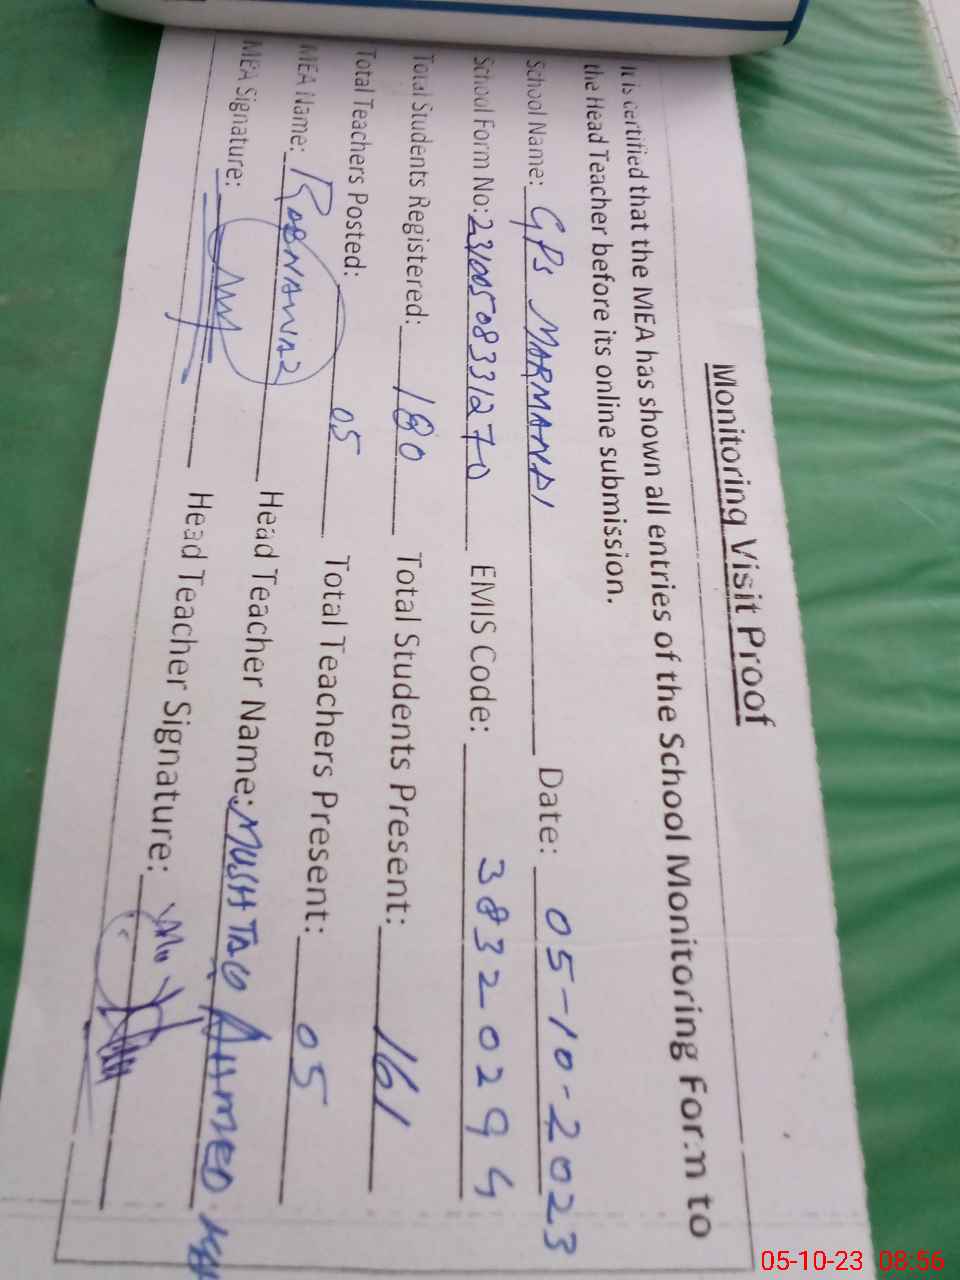 Monitoring Visit Proof
It is certified that the MEA has shown all entries of the School Monitoring Form to
the Head Teacher before its online submission.
School Name: GPS MARMANDI Date: 05-10-2023
School Form No: 23100508331270 EMIS Code: 38320294
Total Students Registered: 180 Total Students Present: 161
Total Teachers Posted: 05 Total Teachers Present: 05
MEA Name: RABNAWAZ Head Teacher Name: MUSHTAQ AHMED
MEA Signature: Head Teacher Signature:
05-10-23 08:56